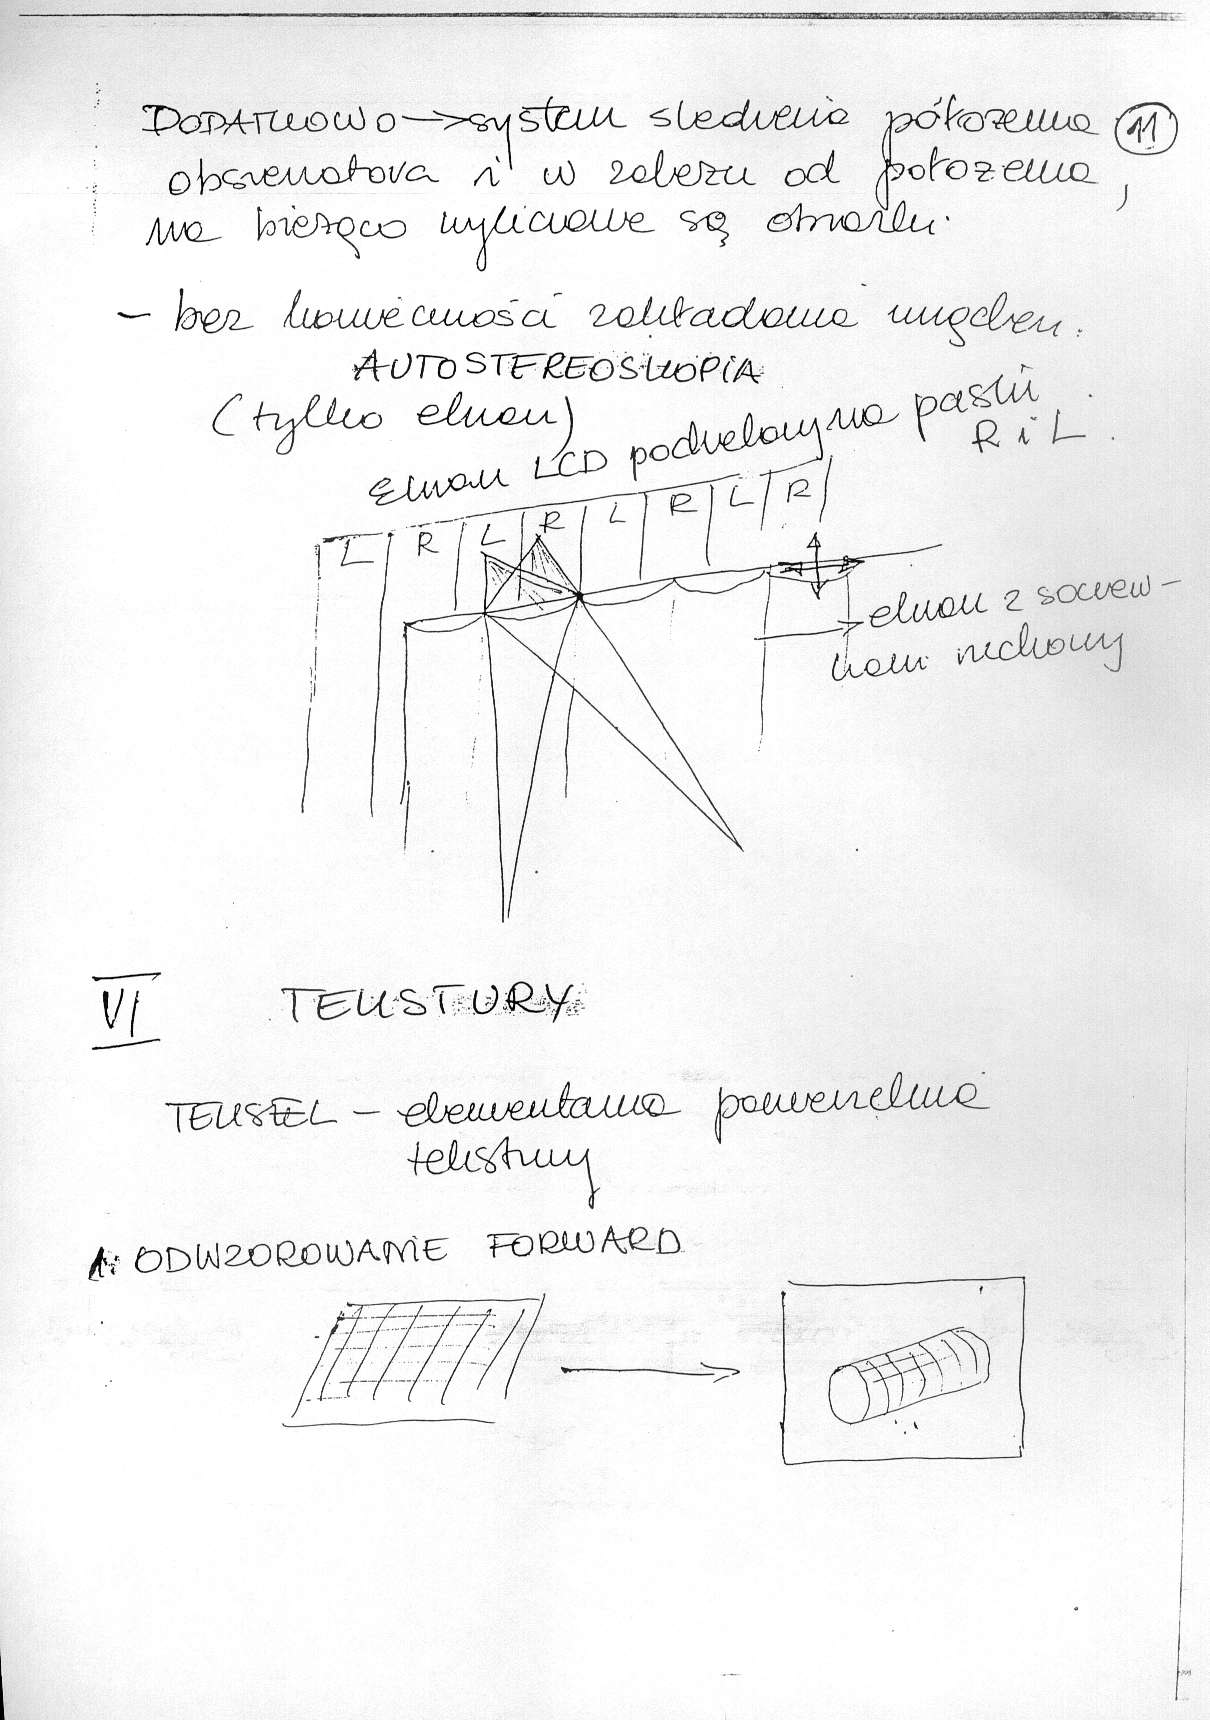 DODATKOWO → system śledzenia położenia 11
obserwatora i w zależn od położenia,
na bieżąco wyliczane są obrazki.
- bez konieczności zakładania urządzeń.
AUTOSTEREOSKOPIA
(tylko ekran)
Ekran LCD podzielony na paski
R i L.
L R L R L R L R
ekran z soczew-
kami ruchomy
VI TEKSTURY
TEKSEL - elementarna powierzchnia
tekstury
1. ODWZOROWANIE FORWARD